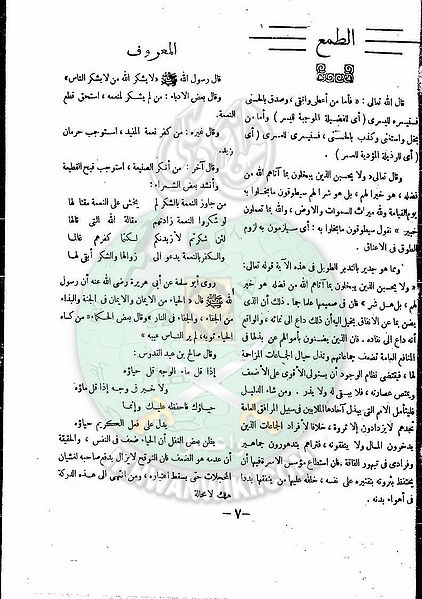 الطمع
قال الله تعالى : « فأما من أعطى واتقى ، وصدق بالحسنى
فسنيسره لليسرى ( أى للفضيلة الموجبة لليسر ) وأما من
بخل واستغنى وكذب بالحسنى ، فسنيسره للعسرى ( أى
أى للرذيلة المؤدية للعسر ) .
وقال تعالى « ولا يحسبن الذين يبخلون بما آتاهم الله من
فضله ، هو خيرا لهم ، بل هو شر لهم سيطوقون ما بخلوا به
يوم القيامة ولله ميراث السموات والارض ، والله بما تعملون
خبير » نقول سيطوقون ما بخلوا به : أى سيلزمون به لزوم
الطوق فى الاعناق .
ومما هو جدير بالتدبر الطويل فى هذه الآية قوله تعالى :
« ولا يحسبن الذين يبخلون بما آتاهم الله من فضله هو خير
لهم ، بل هو شر » فان فى صميمها علما جما . ذلك أن الذى
يضن بما عن الانفاق يخيل اليه أن ذلك داع الى نمائه ، والواقع
أنه داع الى نفاده . فان الذين يضنون بأموالهم عن بذلها فى
المنافع العامة تضعف جماعاتهم وتذل حيال الجماعات المزاحمة
لها ، فيقتضى نظام الوجود أن يستولى الأقوى على الأضعف
ويمتص عصارته ، فلا يبقى له ولا يذر . ومن شاء الدليل
فليتأمل الامم التى يبذل آحادها الملايين فى سبيل المرافق العامة
تجدهم لا يزدادون إلا ثروة ، خلافا لأفراد الجماعات الذين
يدخرون المال ولا ينفقونه ، فتراهم يتدهورون جماهير
وفرادى فى تيهور الفاقة . فان استطاع مؤسس الاسرة فيها أن
يحتفظ بثروته بتقتيره على نفسه ، خلفه عليها من ينفقها بددا
فى أهواء بدنه .
المعروف
قال رسول الله ﷺ « لا يشكر الله من لا يشكر الناس »
وقال بعض الادباء : من لم يشكر لمنعمه ، استحق قطع
النعمة .
وقال غيره : من كفر نعمة المفيد ، استوجب حرمان
المزيد .
وقال آخر : من أنكر الصنيعة ، استوجب قبح القطيعة
وأنشد بعض الشعراء :
من جاوز النعمة بالشكر لم يخش على النعمة مغتالها
لو شكروا النعمة زادتهم مقالة الله التى قالها
لئن شكرتم لأزيدنكم لكنما كفرهم غالها
والكفر بالنعمة يدعو الى زوالها والشكر أبقى لها
روى أبو سلمة عن أبى هريرة رضى الله عنه أن رسول
الله ﷺ قال « الحياء من الايمان والايمان فى الجنة والبذاء
من الجفاء ، والجفاء فى النار » وقال بعض الحكماء « من كساه
الحياء ثوبه ، لم ير الناس عيبه »
وقال صالح بن عبد القدوس :
إذا قل ماء الوجه قل حياؤه
ولا خير فى وجه إذا قل ماؤه
حياؤك فاحفظه عليك وإنما
يدل على فعل الكريم حياؤه
يظن بعض الغفل أن الحياء ضعف فى النفس ، والحقيقة
أن عدمه هو الضعف فان التوقح لا يزال يدفع صاحبه لغشيان
المخجلات حتى يسقط اعتباره ، ومن انتهى الى هذه الدركة
هلك لا محالة
– ٧ –